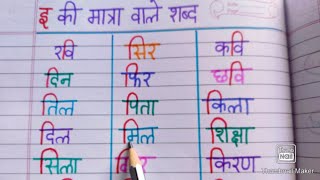 इ की मात्रा वाले शब्द
रवि सिर कवि
दिन फिर छवि
तिल पिता किला
दिल मिल शिक्षा
सिला किरण